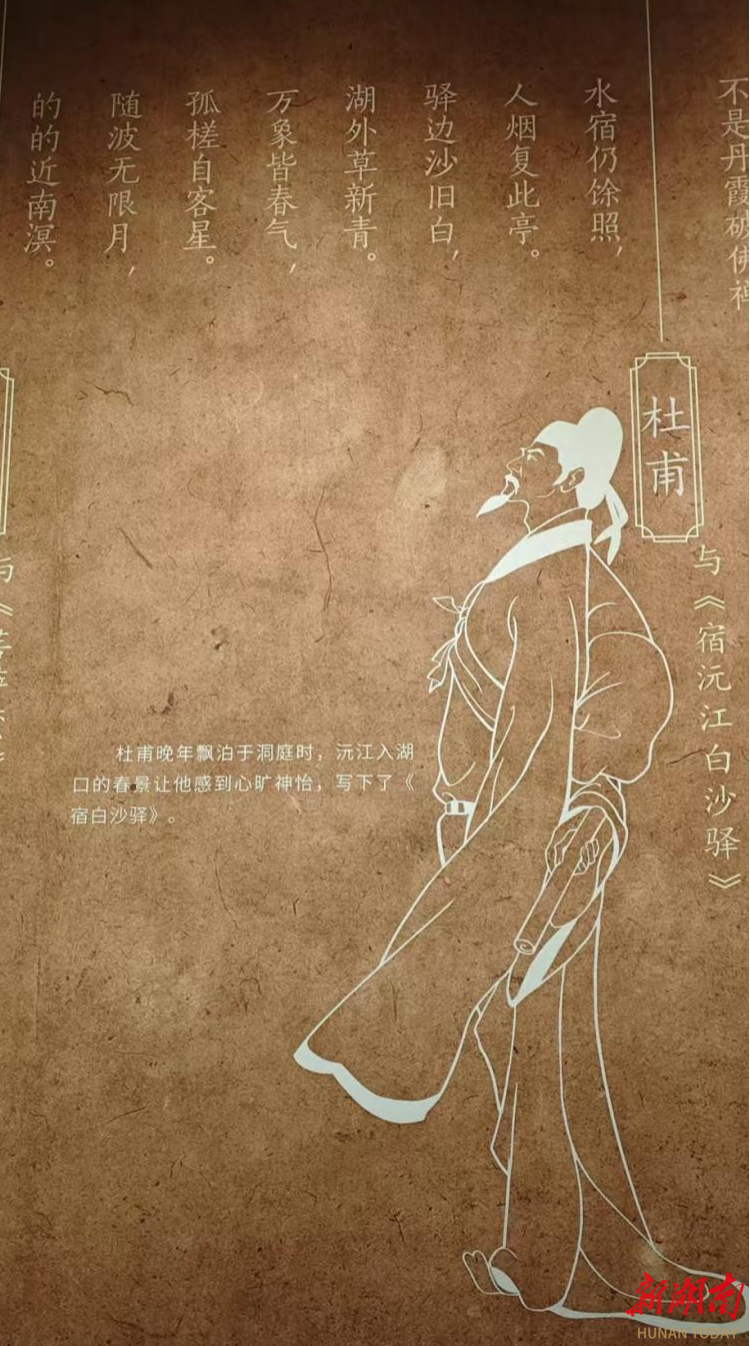 不是丹霞破佛禅
杜甫
与《宿沅江白沙驿》
水宿仍馀照，
人烟复此亭。
驿边沙旧白，
湖外草新青。
万象皆春气，
孤槎自客星。
随波无限月，
的的近南溟。
杜甫晚年飘泊于洞庭时，沅江入湖
口的春景让他感到心旷神怡，写下了《
宿白沙驿》。
与《
新湖南
HUNAN TODAY